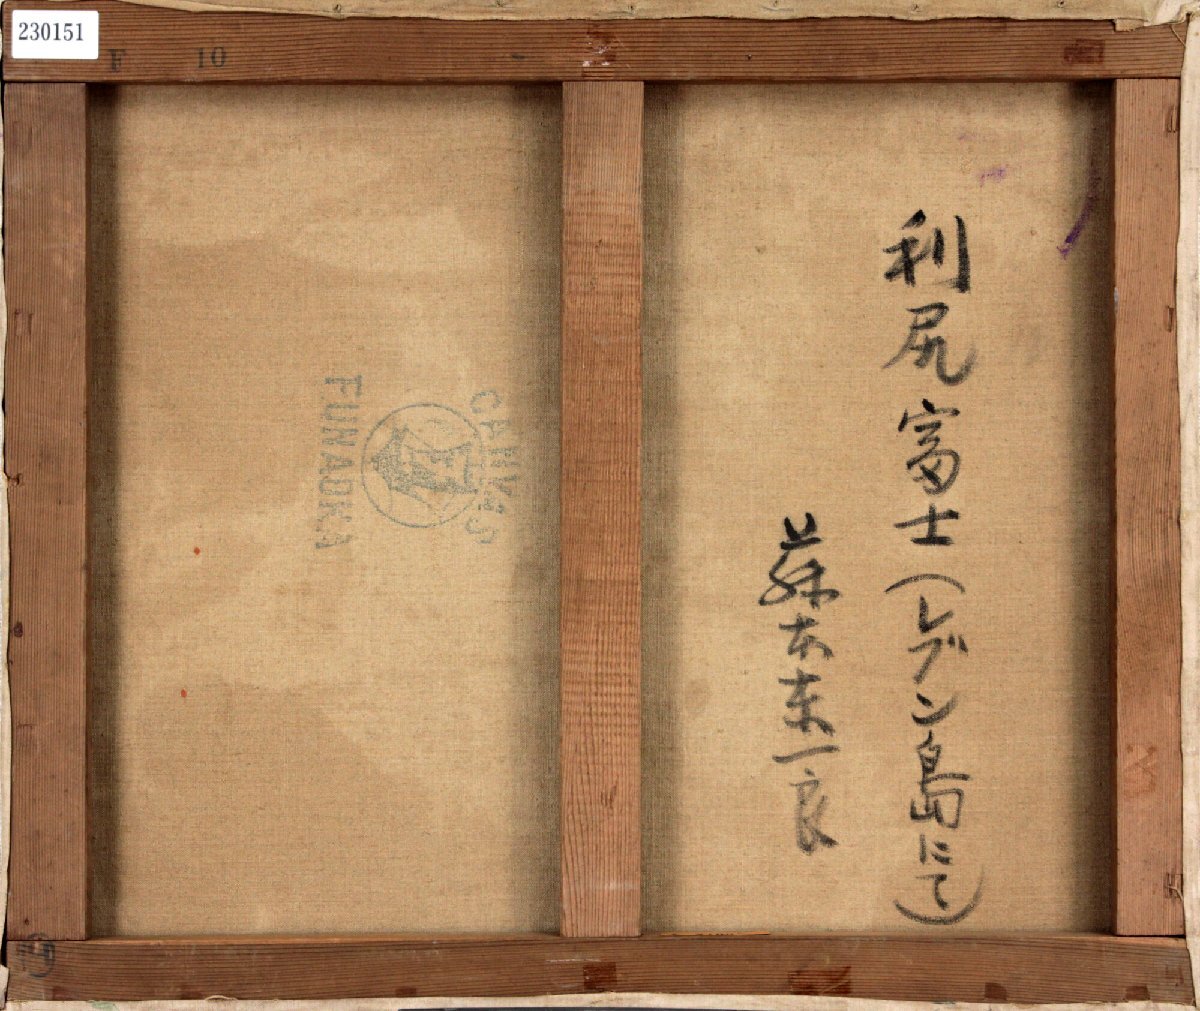 230151
F 10
利尻富士(レブン島にて)
藤本東一良
CANVAS
FUNAOKA